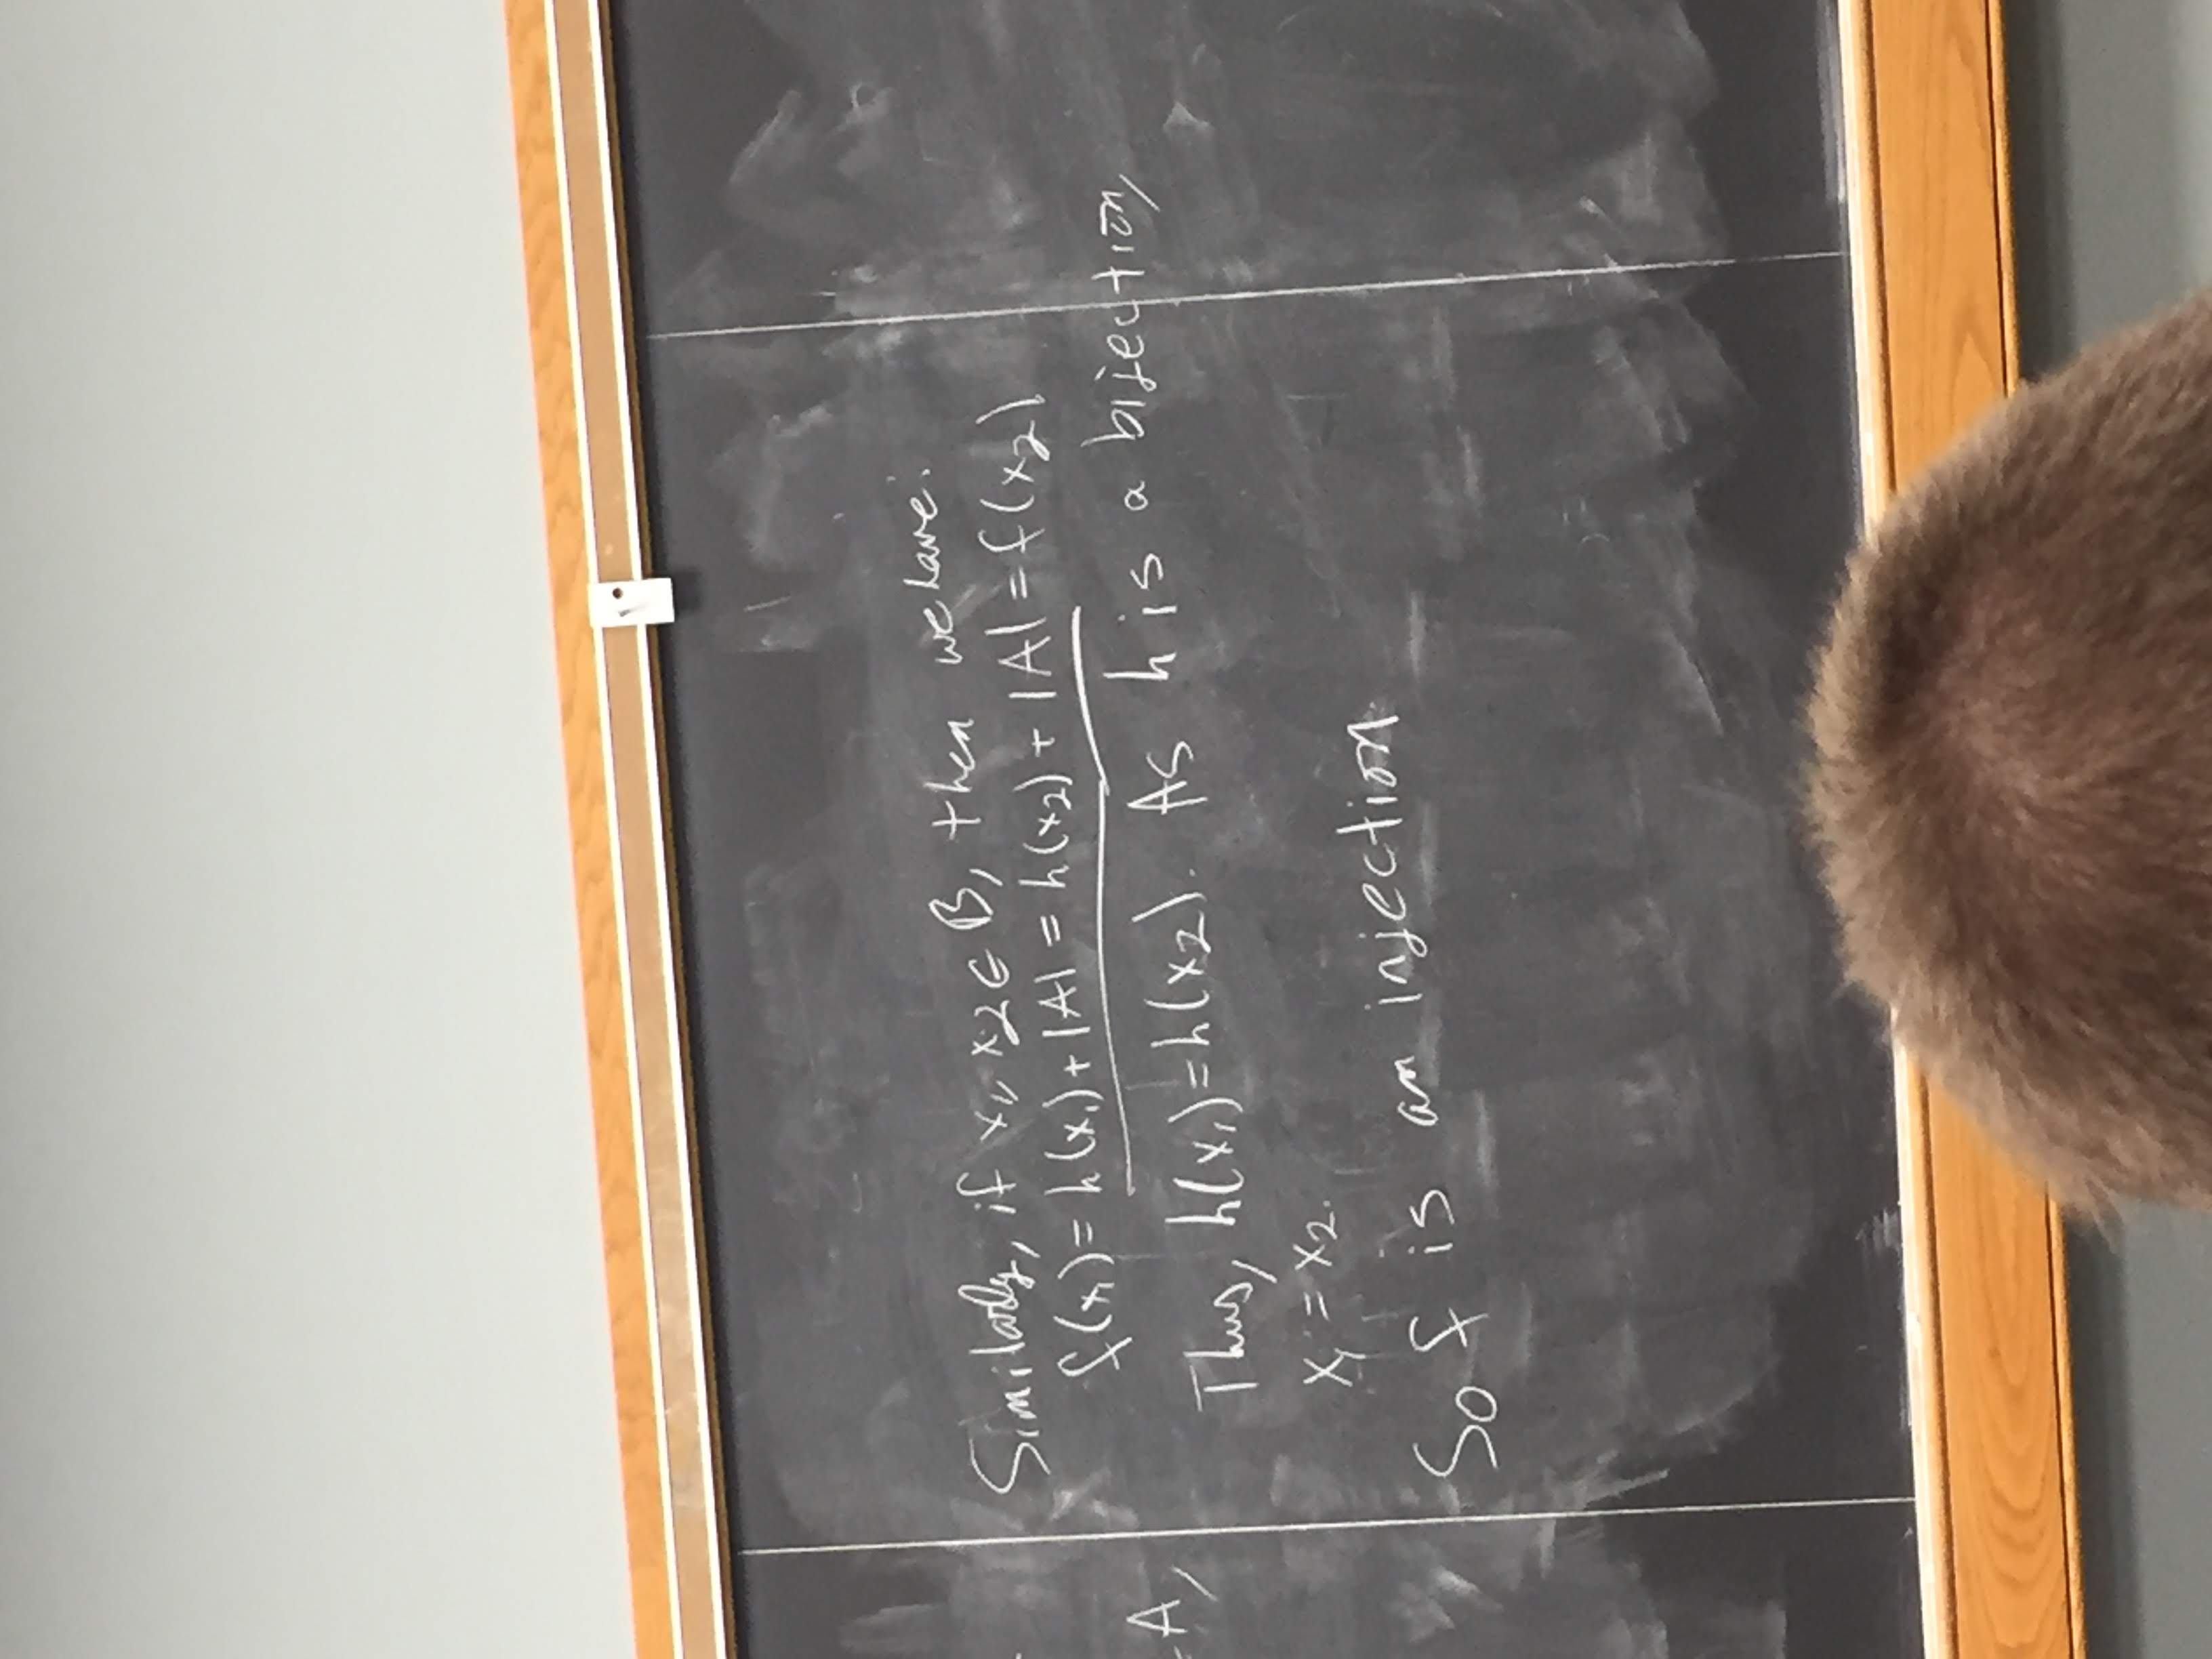 A,
Similarly, if x₁, x₂ ∈ B, then we have:
f(x₁) = h(x₁) + |A| = h(x₂) + |A| = f(x₂)
Thus, h(x₁) = h(x₂). As h is a bijection,
x₁ = x₂.
So f is an injection